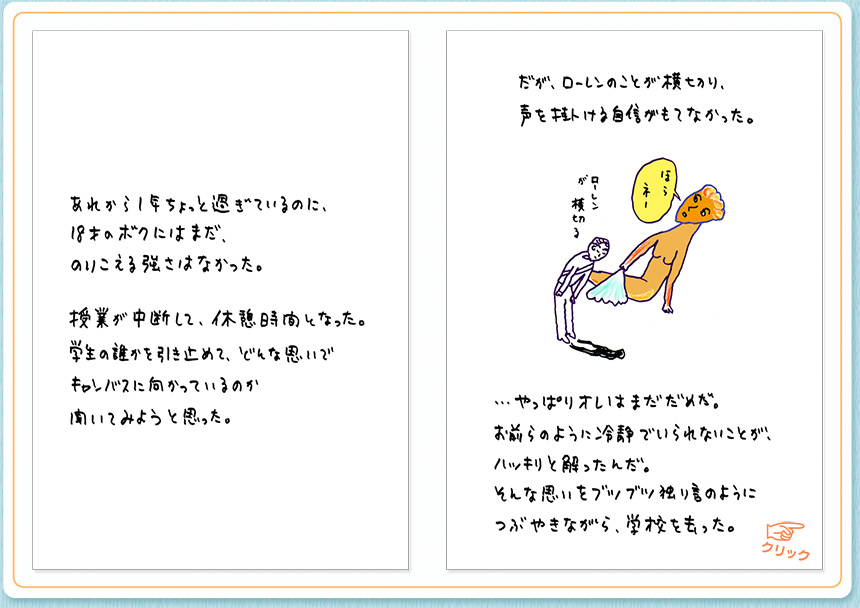 あれから1年ちょっと過ぎているのに、
18才のボクにはまだ、
のりこえる強さはなかった。
授業が中断して、休憩時間となった。
学生の誰かを引き止めて、どんな思いで
キャンバスに向かっているのか
聞いてみようと思った。
だが、ローレンのことが横切り、
声を掛ける自信がもてなかった。
ほら
ネー
ローレン
が横切る
…やっぱりオレはまだだめだ。
お前らのように冷静でいられないことが、
ハッキリと解ったんだ。
そんな思いをブツブツ独り言のように
つぶやきながら、学校を去った。
クリック